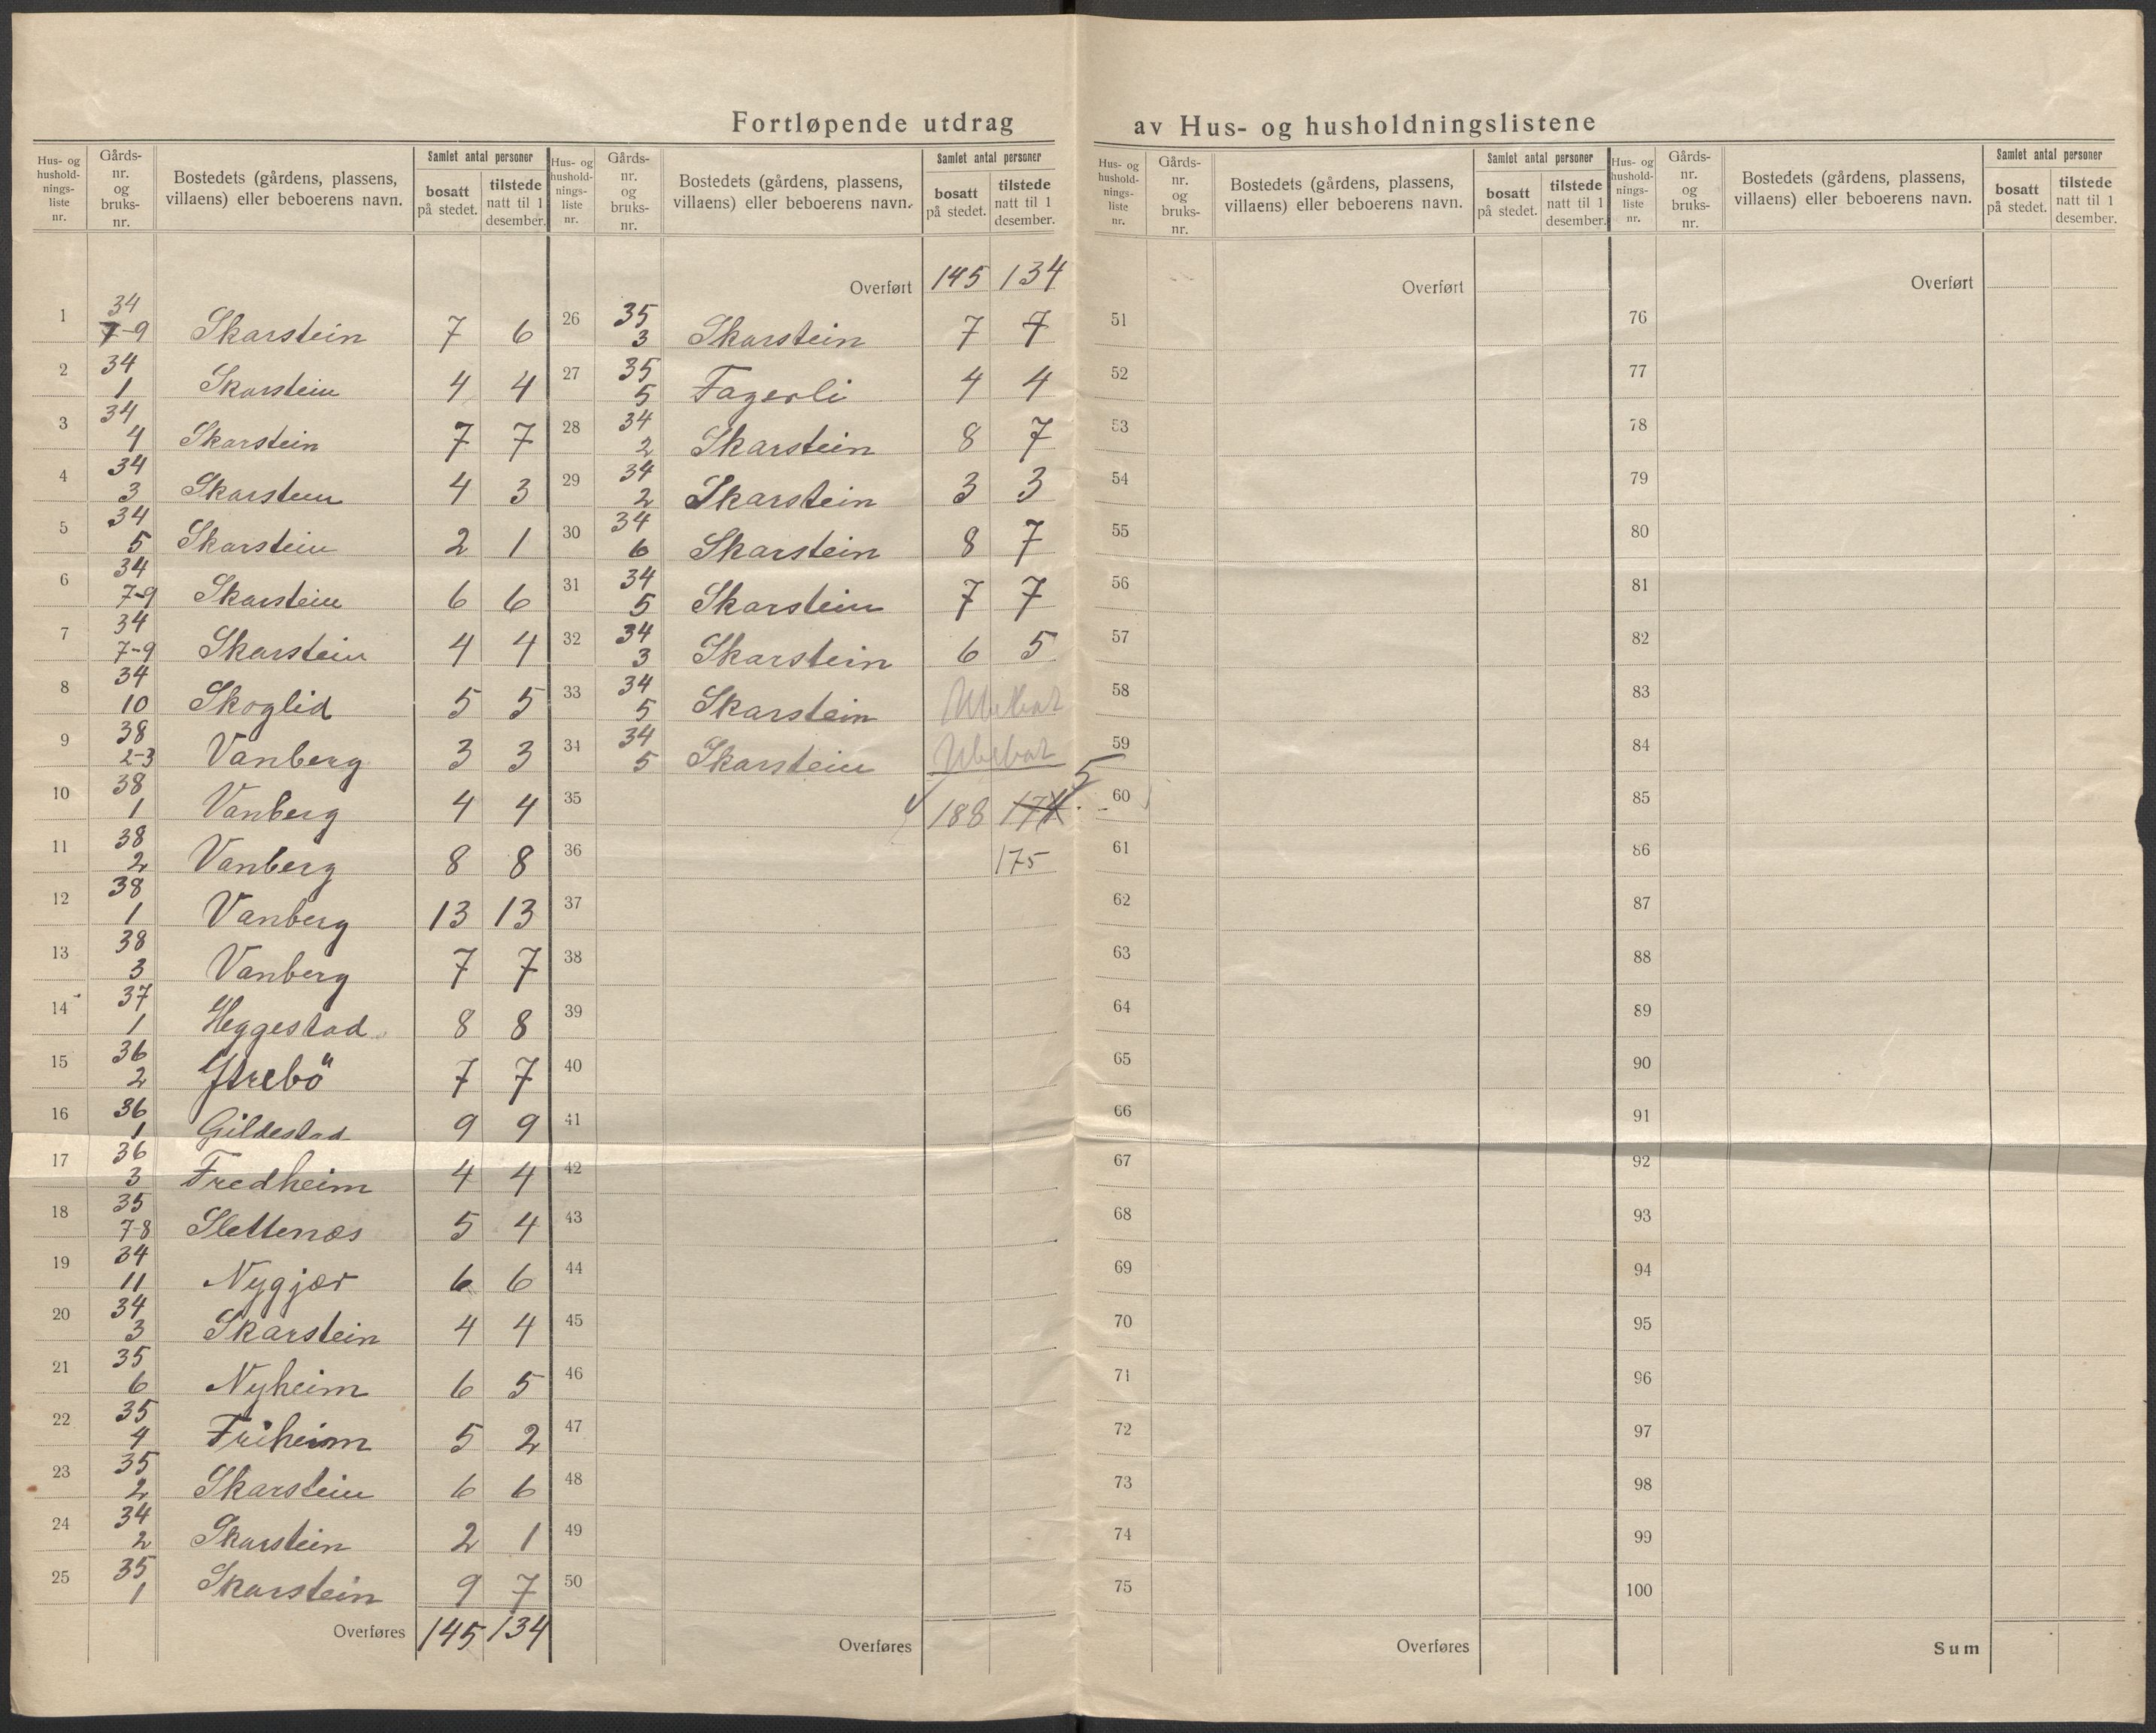 Fortløpende utdrag av Hus- og husholdningslistene
Hus- og hushold- nings- liste nr. | Gårds- nr. og bruks- nr. | Bostedets (gårdens, plassens, villaens) eller beboerens navn. | Samlet antal personer | bosatt på stedet. | tilstede natt til 1 desember.
1 34 7-9 Skarstein 7 6
2 34 1 Skarstein 4 4
3 34 4 Skarstein 7 7
4 34 3 Skarstein 4 3
5 34 5 Skarstein 2 1
6 34 7-9 Skarstein 6 6
7 34 7-9 Skarstein 4 4
8 34 10 Skoglid 5 5
9 38 2-3 Vanberg 3 3
10 38 1 Vanberg 4 4
11 38 2 Vanberg 8 8
12 38 1 Vanberg 13 13
13 38 3 Vanberg 7 7
14 37 1 Heggestad 8 8
15 36 2 7 7
16 36 1 Gildestad 9 9
17 36 3 Fredheim 4 4
18 35 7-8 Slettenæs 5 4
19 34 11 Nygjær 6 6
20 34 3 Skarstein 4 4
21 35 6 Nyheim 6 5
22 35 4 Friheim 5 2
23 35 2 Skarstein 6 6
24 34 2 Skarstein 2 1
25 35 1 Skarstein 9 7
Overføres 145 134
Hus- og hushold- nings- liste nr. | Gårds- nr. og bruks- nr. | Bostedets (gårdens, plassens, villaens) eller beboerens navn. | Samlet antal personer | bosatt på stedet. | tilstede natt til 1 desember.
Overført 145 134
26 35 3 Skarstein 7 7
27 35 5 Fagerli 4 4
28 34 2 Skarstein 8 7
29 34 2 Skarstein 3 3
30 34 6 Skarstein 8 7
31 34 5 Skarstein 7 7
32 34 3 Skarstein 6 5
33 34 5 Skarstein Ubebot
34 34 5 Skarstein Ubebot
35 188 174 5
36 175
37
38
39
40
41
42
43
44
45
46
47
48
49
50
Overføres
Hus- og hushold- nings- liste nr. | Gårds- nr. og bruks- nr. | Bostedets (gårdens, plassens, villaens) eller beboerens navn. | Samlet antal personer | bosatt på stedet. | tilstede natt til 1 desember.
Overført
51
52
53
54
55
56
57
58
59
60
61
62
63
64
65
66
67
68
69
70
71
72
73
74
75
Overføres
Hus- og hushold- nings- liste nr. | Gårds- nr. og bruks- nr. | Bostedets (gårdens, plassens, villaens) eller beboerens navn. | Samlet antal personer | bosatt på stedet. | tilstede natt til 1 desember.
Overført
76
77
78
79
80
81
82
83
84
85
86
87
88
89
90
91
92
93
94
95
96
97
98
99
100
Sum